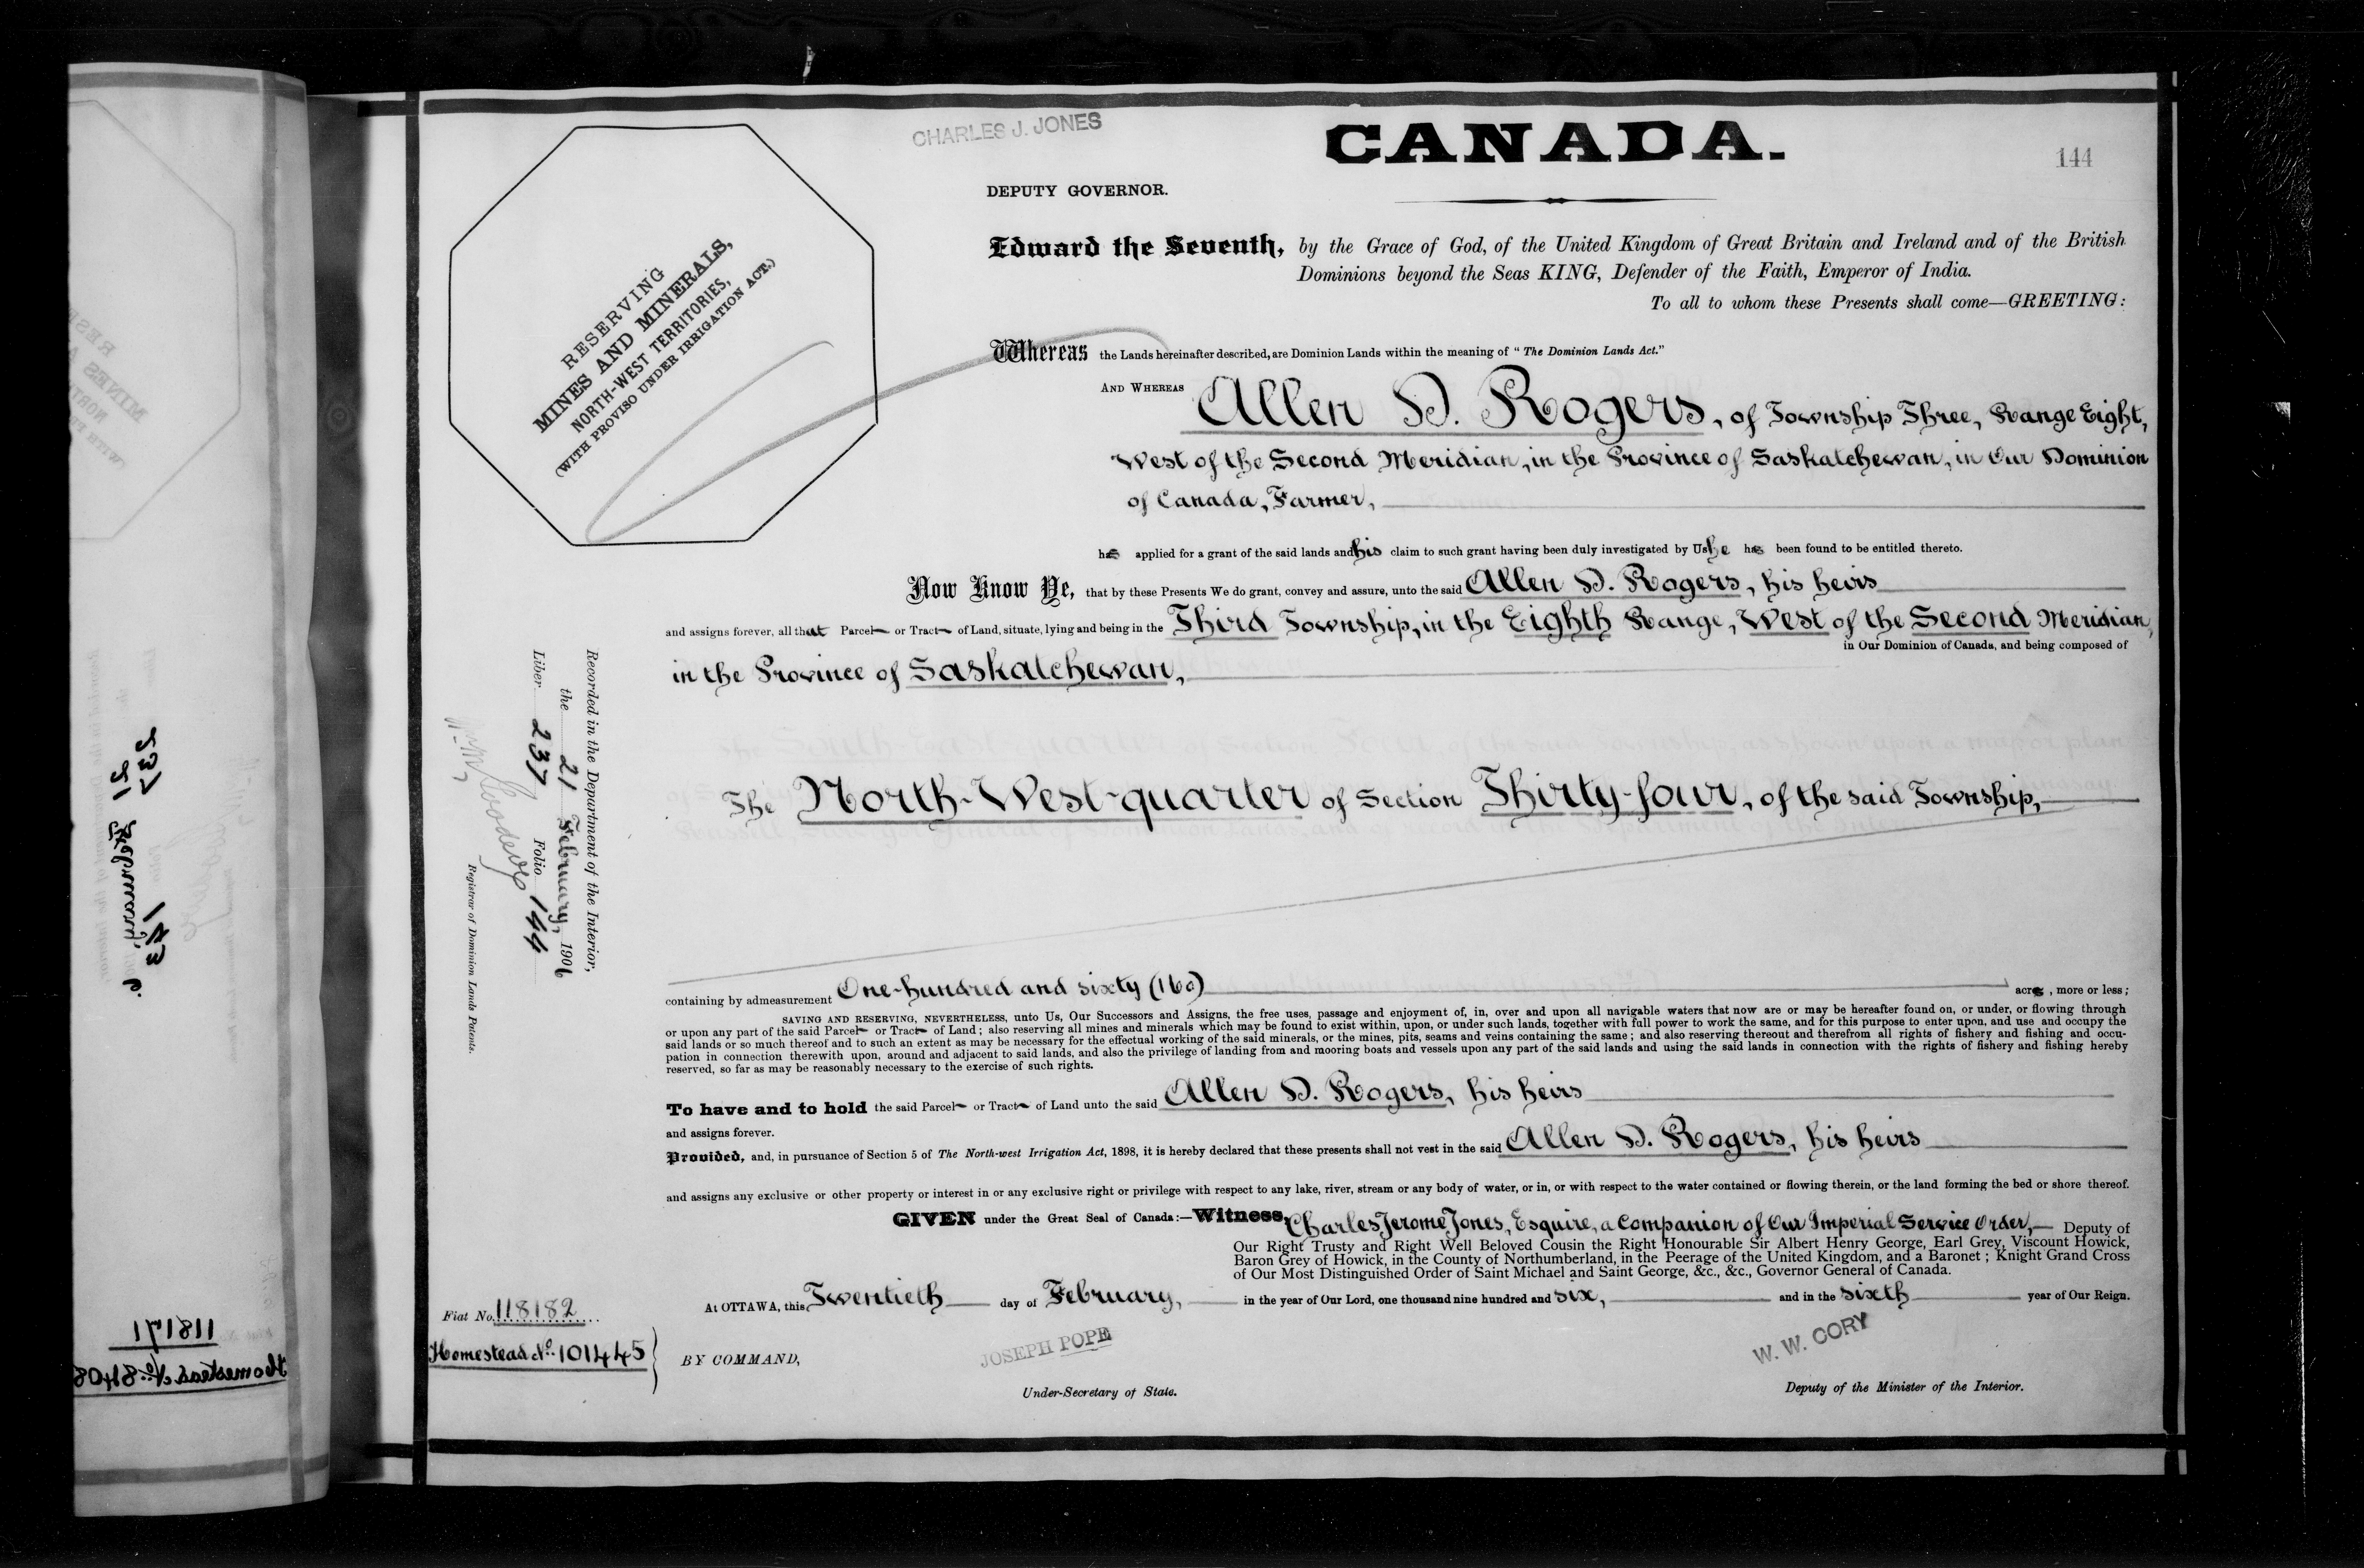 CHARLES J. JONES
CANADA.
144
DEPUTY GOVERNOR.
RESERVING
MINES AND MINERALS,
NORTH-WEST TERRITORIES,
(WITH PROVISO UNDER IRRIGATION ACT.)
Edward the Seventh, by the Grace of God, of the United Kingdom of Great Britain and Ireland and of the British
Dominions beyond the Seas KING, Defender of the Faith, Emperor of India.
To all to whom these Presents shall come—GREETING:
Whereas the Lands hereinafter described, are Dominion Lands within the meaning of "The Dominion Lands Act."
AND WHEREAS Allen D. Rogers, of Township Three, Range Eight,
West of the Second Meridian, in the Province of Saskatchewan, in Our Dominion
of Canada, Farmer,
has applied for a grant of the said lands and his claim to such grant having been duly investigated by Us he has been found to be entitled thereto.
Now Know Ye, that by these Presents We do grant, convey and assure, unto the said Allen D. Rogers, his heirs
and assigns forever, all that Parcel or Tract of Land, situate, lying and being in the Third Township, in the Eighth Range, West of the Second Meridian,
in the Province of Saskatchewan, in Our Dominion of Canada, and being composed of
The North-West-quarter of Section Thirty-four, of the said Township,
containing by admeasurement One-hundred and sixty (160) acres, more or less;
SAVING AND RESERVING, NEVERTHELESS, unto Us, Our Successors and Assigns, the free uses, passage and enjoyment of, in, over and upon all navigable waters that now are or may be hereafter found on, or under, or flowing through
or upon any part of the said Parcel or Tract of Land; also reserving all mines and minerals which may be found to exist within, upon, or under such lands, together with full power to work the same, and for this purpose to enter upon, and use and occupy the
said lands or so much thereof and to such an extent as may be necessary for the effectual working of the said minerals, or the mines, pits, seams and veins containing the same; and also reserving thereout and therefrom all rights of fishery and fishing and occu-
pation in connection therewith upon, around and adjacent to said lands, and also the privilege of landing from and mooring boats and vessels upon any part of the said lands and using the said lands in connection with the rights of fishery and fishing hereby
reserved, so far as may be reasonably necessary to the exercise of such rights.
To have and to hold the said Parcel or Tract of Land unto the said Allen D. Rogers, his heirs
and assigns forever.
Provided, and, in pursuance of Section 5 of The North-west Irrigation Act, 1898, it is hereby declared that these presents shall not vest in the said Allen D. Rogers, his heirs
and assigns any exclusive or other property or interest in or any exclusive right or privilege with respect to any lake, river, stream or any body of water, or in, or with respect to the water contained or flowing therein, or the land forming the bed or shore thereof.
GIVEN under the Great Seal of Canada:—Witness, Charles Jerome Jones, Esquire, a Companion of Our Imperial Service Order,— Deputy of
Our Right Trusty and Right Well Beloved Cousin the Right Honourable Sir Albert Henry George, Earl Grey, Viscount Howick,
Baron Grey of Howick, in the County of Northumberland, in the Peerage of the United Kingdom, and a Baronet; Knight Grand Cross
of Our Most Distinguished Order of Saint Michael and Saint George, &c., &c., Governor General of Canada.
At OTTAWA, this Twentieth day of February, in the year of Our Lord, one thousand nine hundred and six, and in the sixth year of Our Reign.
BY COMMAND,
JOSEPH POPE
Under-Secretary of State.
W. W. CORY
Deputy of the Minister of the Interior.
Fiat No. 118182
Homestead No. 101445
Recorded in the Department of the Interior,
the 21 February, 1906
Liber 237 Folio 144
Registrar of Dominion Lands Patents.
237
21 February
143
118171
Homestead No. 8408